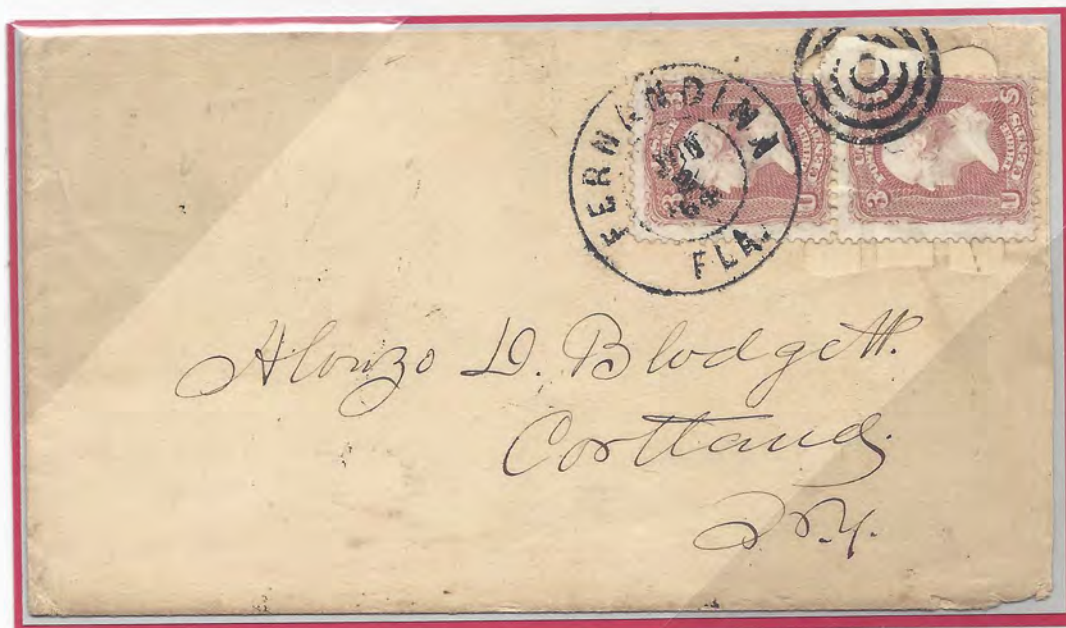 FERNANDINA
FLA.
3
3 U S
Alonzo D. Blodgett.
Cortland,
N.Y.